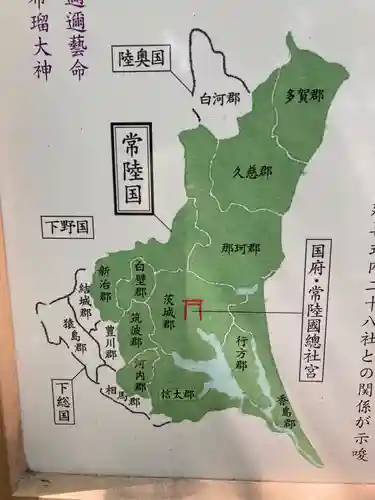 邇邇藝命
布瑠大神
陸奥国
白河郡
多賀郡
久慈郡
常陸国
那珂郡
下野国
新治郡
白壁郡
茨城郡
筑波郡
結城郡
猿島郡
豊川郡
河内郡
相馬郡
信太郡
行方郡
香島郡
下総国
国府・常陸國總社宮
五内二十八社との関係が示唆